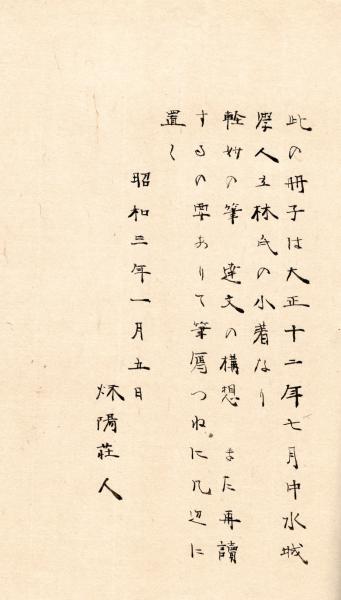 此の冊子は大正十二年七月中水城
学人玉林氏の小著なり
軽妙の筆 達文の構想 また再讀
するの要ありて筆寫つねに几辺に
置く
昭和三年一月五日
炑陽荘人